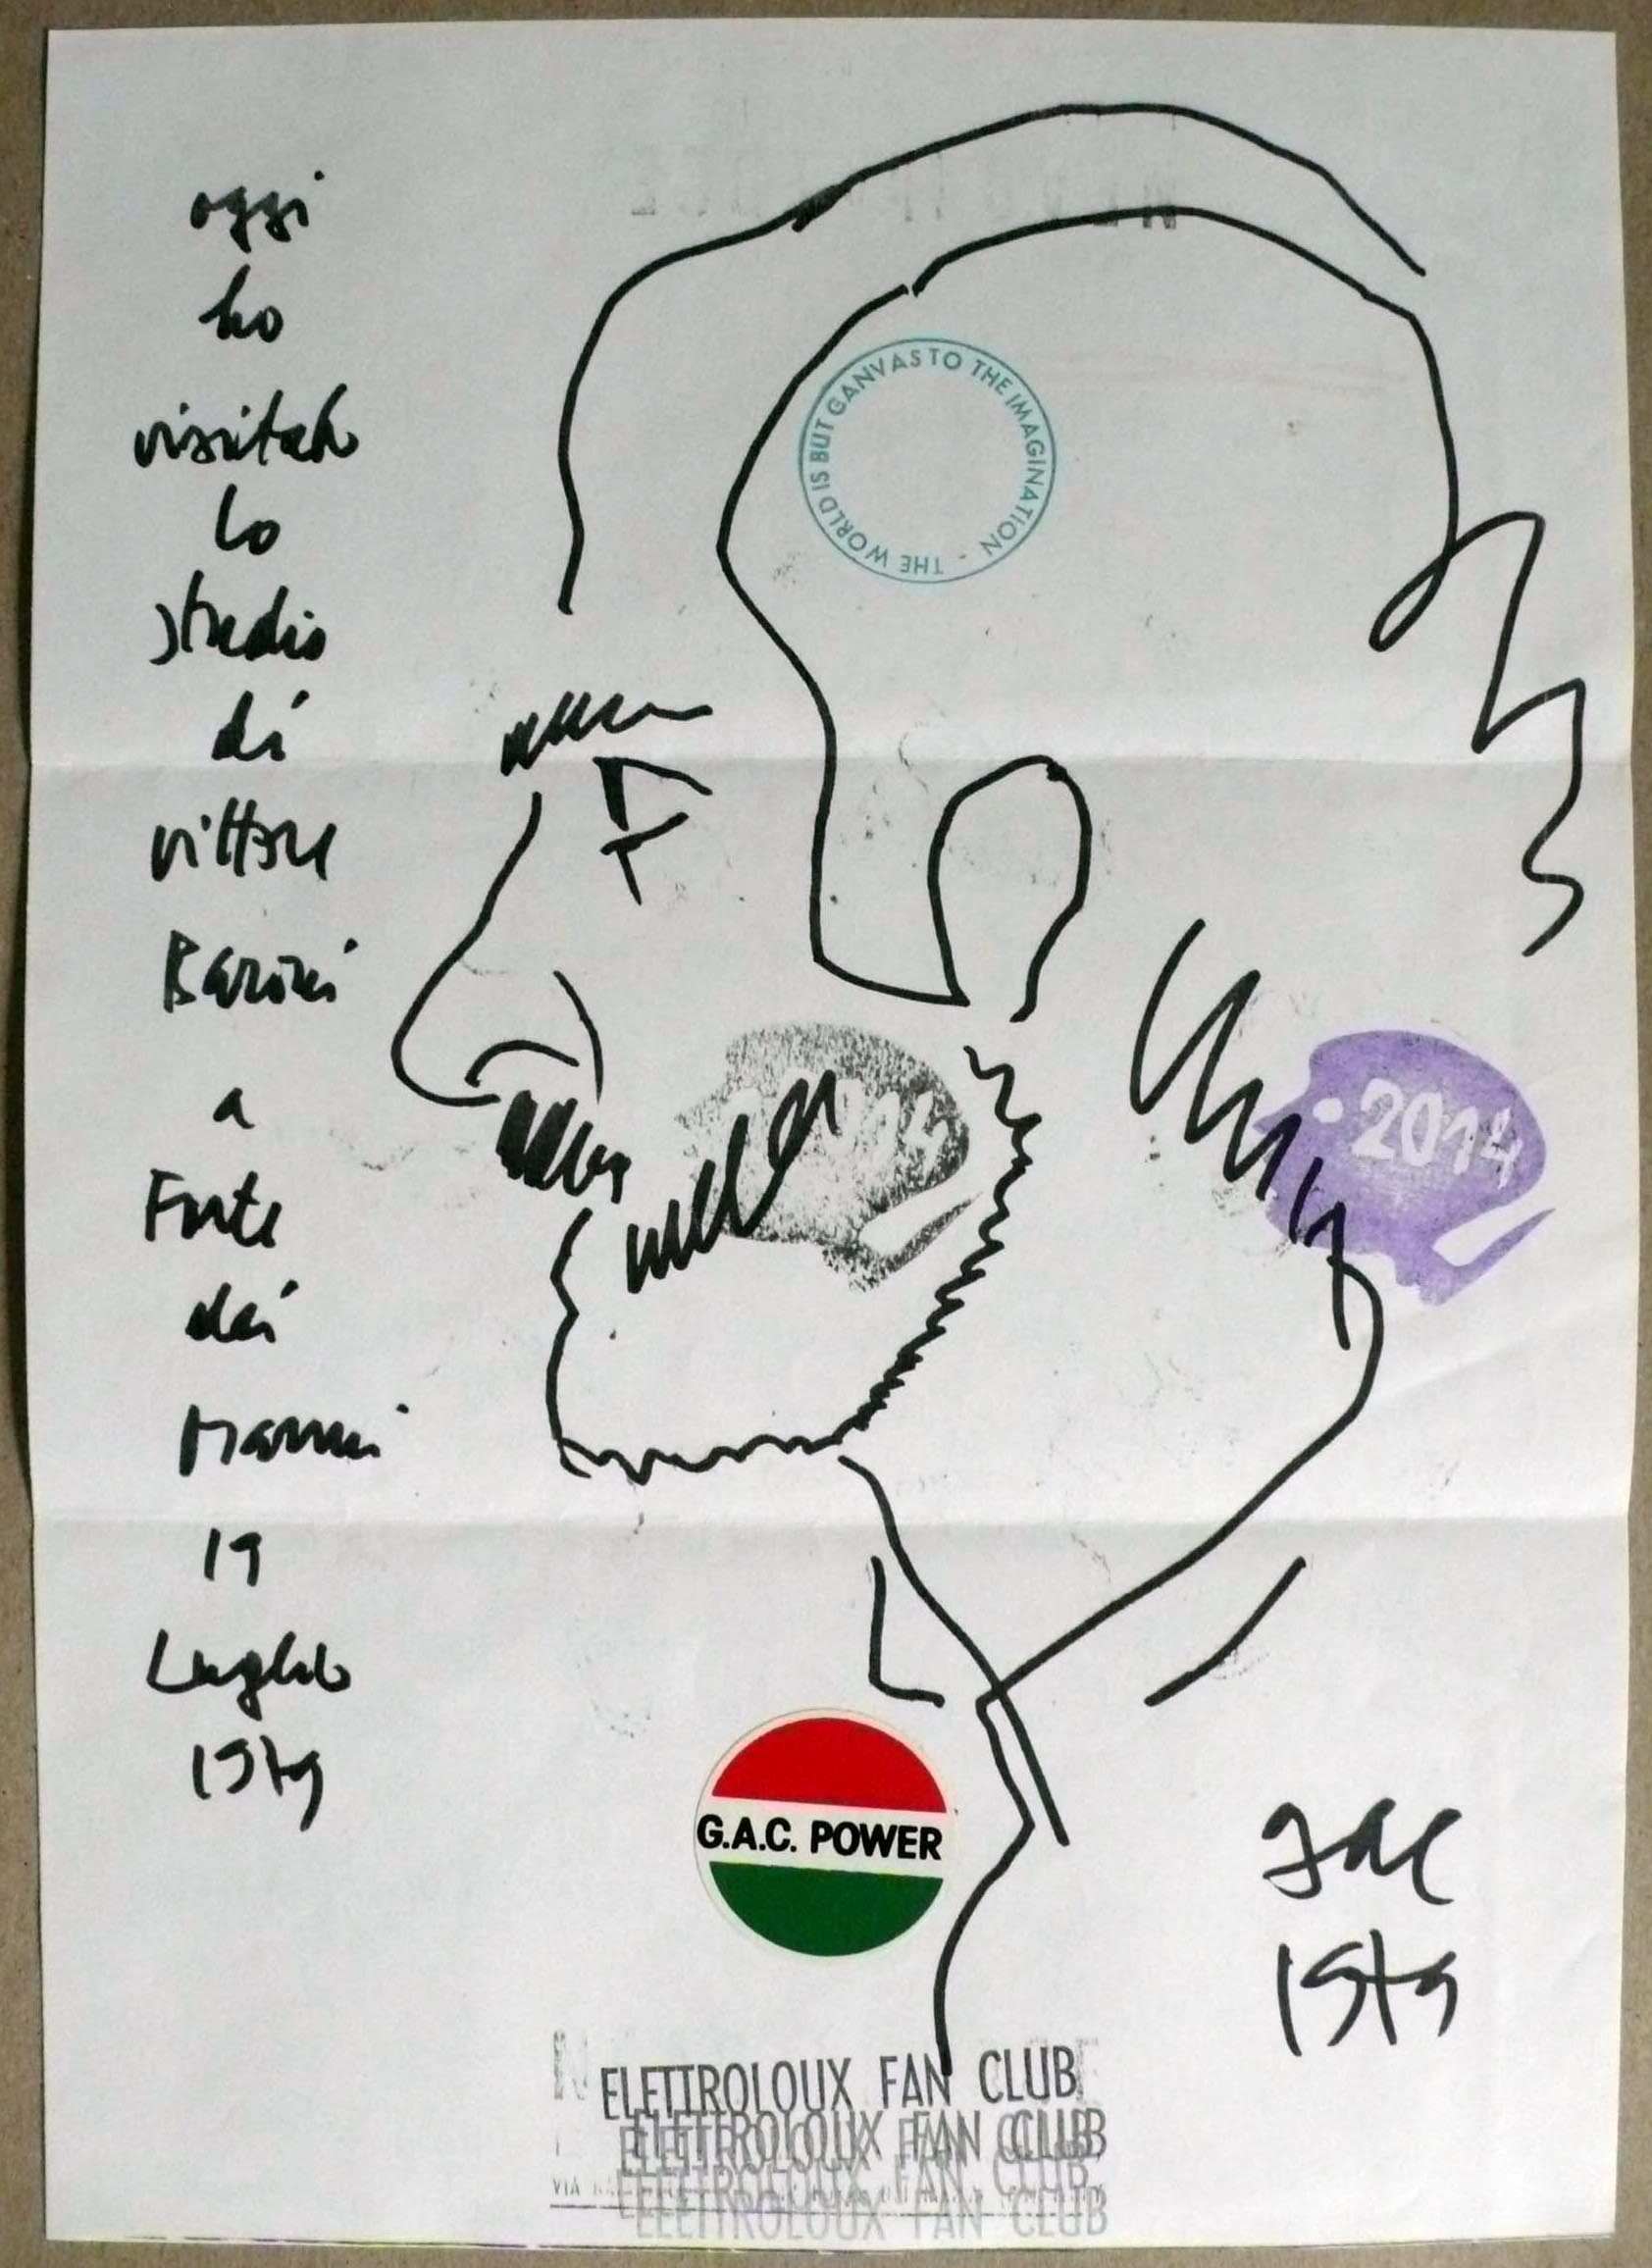 oggi
ho
visitato
lo
studio
di
vittore
Baroni
a
Forte
dei
Marmi
19
Luglio
THE WORLD IS BUT CANVAS TO THE IMAGINATION -
2014
G.A.C. POWER
gac
ELETTROLOUX FAN CLUB
ELETTROLOUX FAN CLUB
ELETTROLOUX FAN CLUB
ELETTROLOUX FAN CLUB
VIA